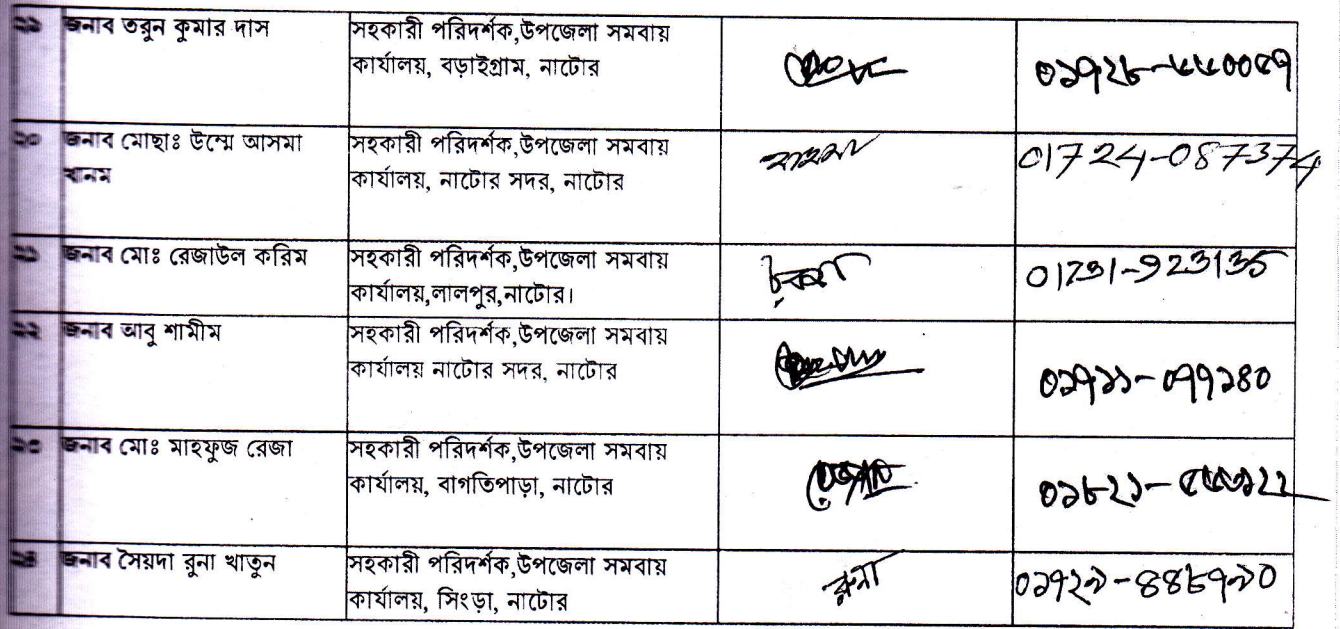 জনাব তরুন কুমার দাস
সহকারী পরিদর্শক,উপজেলা সমবায়
কার্যালয়, বড়াইগ্রাম, নাটোর
২০
জনাব মোছাঃ উম্মে আসমা
খানম
সহকারী পরিদর্শক,উপজেলা সমবায়
কার্যালয়, নাটোর সদর, নাটোর
01724-087374
২১
জনাব মোঃ রেজাউল করিম
সহকারী পরিদর্শক,উপজেলা সমবায়
কার্যালয়,লালপুর,নাটোর।
01731-923135
২২
জনাব আবু শামীম
সহকারী পরিদর্শক,উপজেলা সমবায়
কার্যালয় নাটোর সদর, নাটোর
০১৭১১-০৭৭১৪০
২৩
জনাব মোঃ মাহফুজ রেজা
সহকারী পরিদর্শক,উপজেলা সমবায়
কার্যালয়, বাগতিপাড়া, নাটোর
২৪
জনাব সৈয়দা রুনা খাতুন
সহকারী পরিদর্শক,উপজেলা সমবায়
কার্যালয়, সিংড়া, নাটোর
রুনা
০১৭২৯-৪৪৮৭৯০